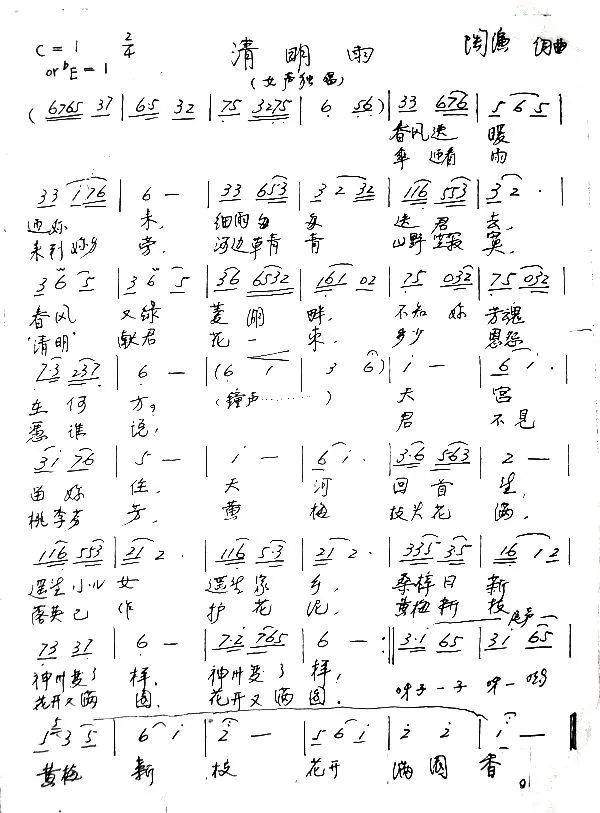 C = 1 2/4 清明雨 陶演 词曲
or ♭E = 1 (女声独唱)
( 6765 37 | 65 32 | 75 3275 | 6 56 ) | 33 676 | 5 6 5 |
春风送 暖
伞 迎着 雨
33 i76 | 6 — | 33 653 | 3 2 32 | 116 553 | 3 2 · |
迎妳 来, 细雨 送 君 去,
来到妳 旁, 河边草青 青 山野空寂 寞,
3 6 5 | 3 6 5 | 36 6532 | 161 02 | 75 032 | 75 032 |
春风 又绿 湖 畔, 不知 妳 芳魂
"清明" 献君 花 一 束, 多少 恩怨
7·3 237 | 6 — | (6 1 | 3 6) | i — | 6 i · |
在 何 方, (钟声………) 天 宫
谁 说, 君 不见
3i 76 | 5 — | i — | 6 i · | 3·6 563 | 2 — |
留 妳 住, 天 河 回 首 望,
桃李芬 芳, 黄 梅 枝头花 满,
116 553 | 21 2 · | 116 5·3 | 21 2 · | 335 35 | 16 12 |
遥望小儿 女 遥望家 乡, 桑梓日 新
落英已 作 护 花 泥, 黄梅新 枝
73 37 | 6 — | 7·2 765 | 6 — :‖ 3·i 65 | 3i 65 |
神州变了 样, 神州变了 样,
花开又满 园, 花开又满 园, 呀子一子 呀一
5 3 5 | 6 i | 2 — | 5 6 i | 2 2 | i — ‖
黄梅 新 枝 花开 满 园 香